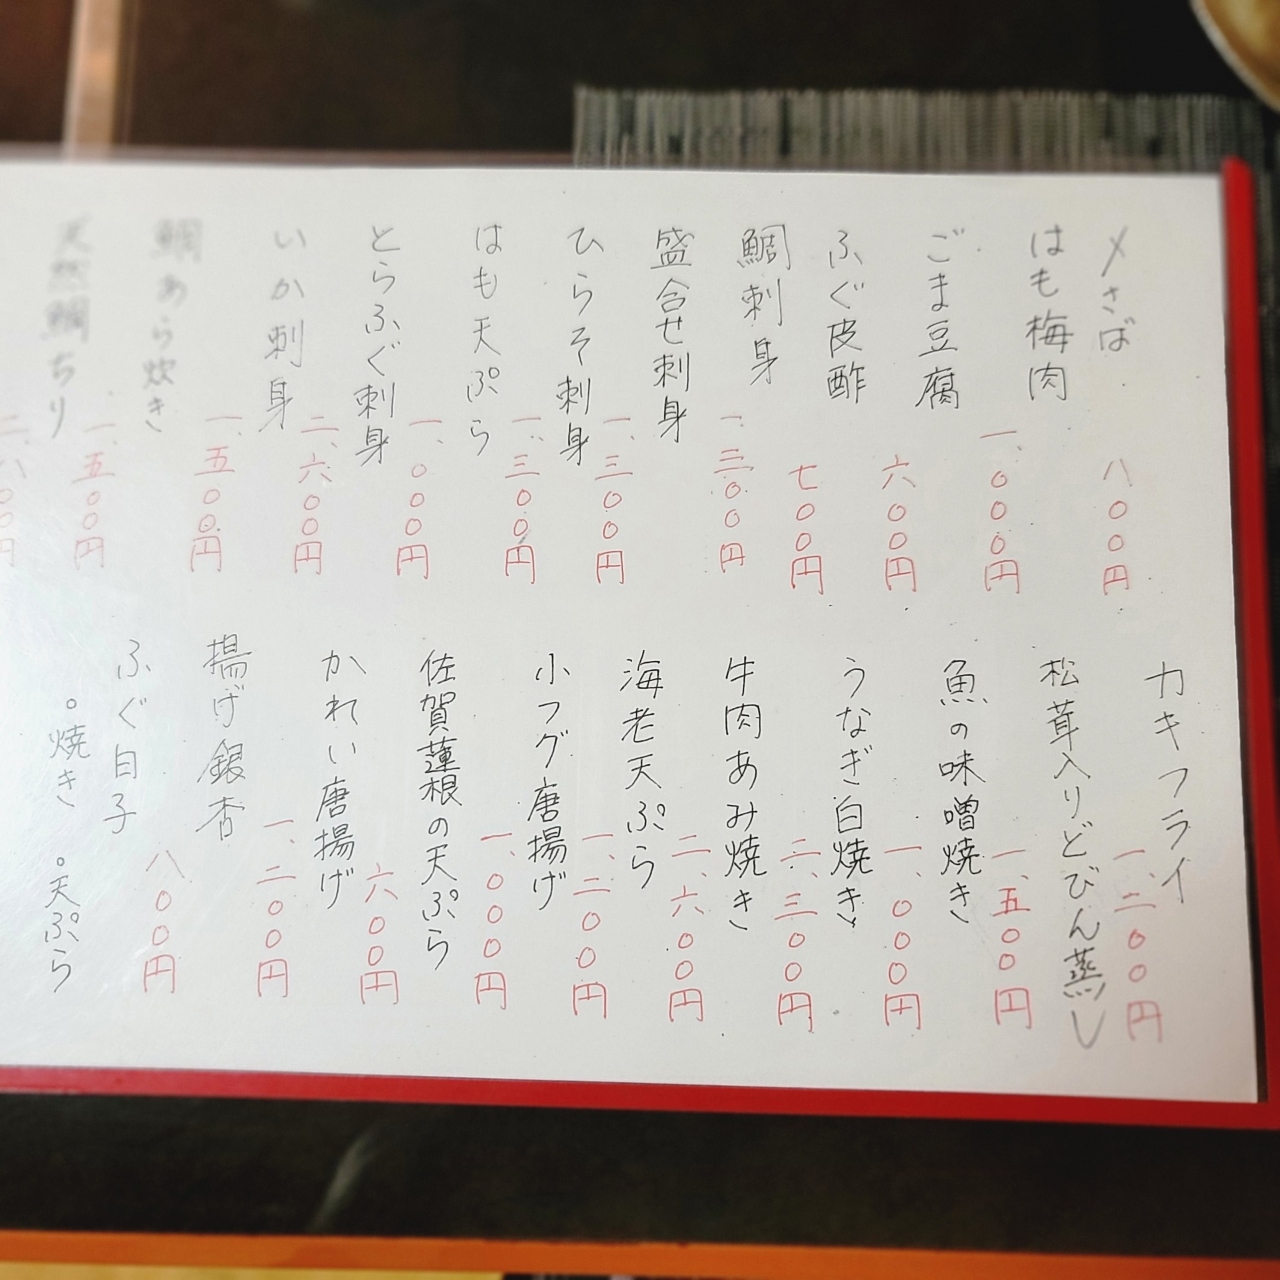 〆さば 八〇〇円
はも梅肉 一、〇〇〇円
ごま豆腐 六〇〇円
ふぐ皮酢 七〇〇円
鯛刺身 一、三〇〇円
盛合せ刺身 一、三〇〇円
ひらそ刺身 一、三〇〇円
はも天ぷら 一、〇〇〇円
とらふぐ刺身 二、六〇〇円
いか刺身 一、五〇〇円
鯛あら炊き 一、五〇〇円
天然鯛ちり 二、八〇〇円
カキフライ 一、二〇〇円
松茸入りどびん蒸し 一、五〇〇円
魚の味噌焼き 一、〇〇〇円
うなぎ白焼き 二、三〇〇円
牛肉あみ焼き 二、六〇〇円
海老天ぷら 一、二〇〇円
小フグ唐揚げ 一、〇〇〇円
佐賀蓮根の天ぷら 六〇〇円
かれい唐揚げ 一、二〇〇円
揚げ銀杏 八〇〇円
ふぐ白子
。焼き 。天ぷら